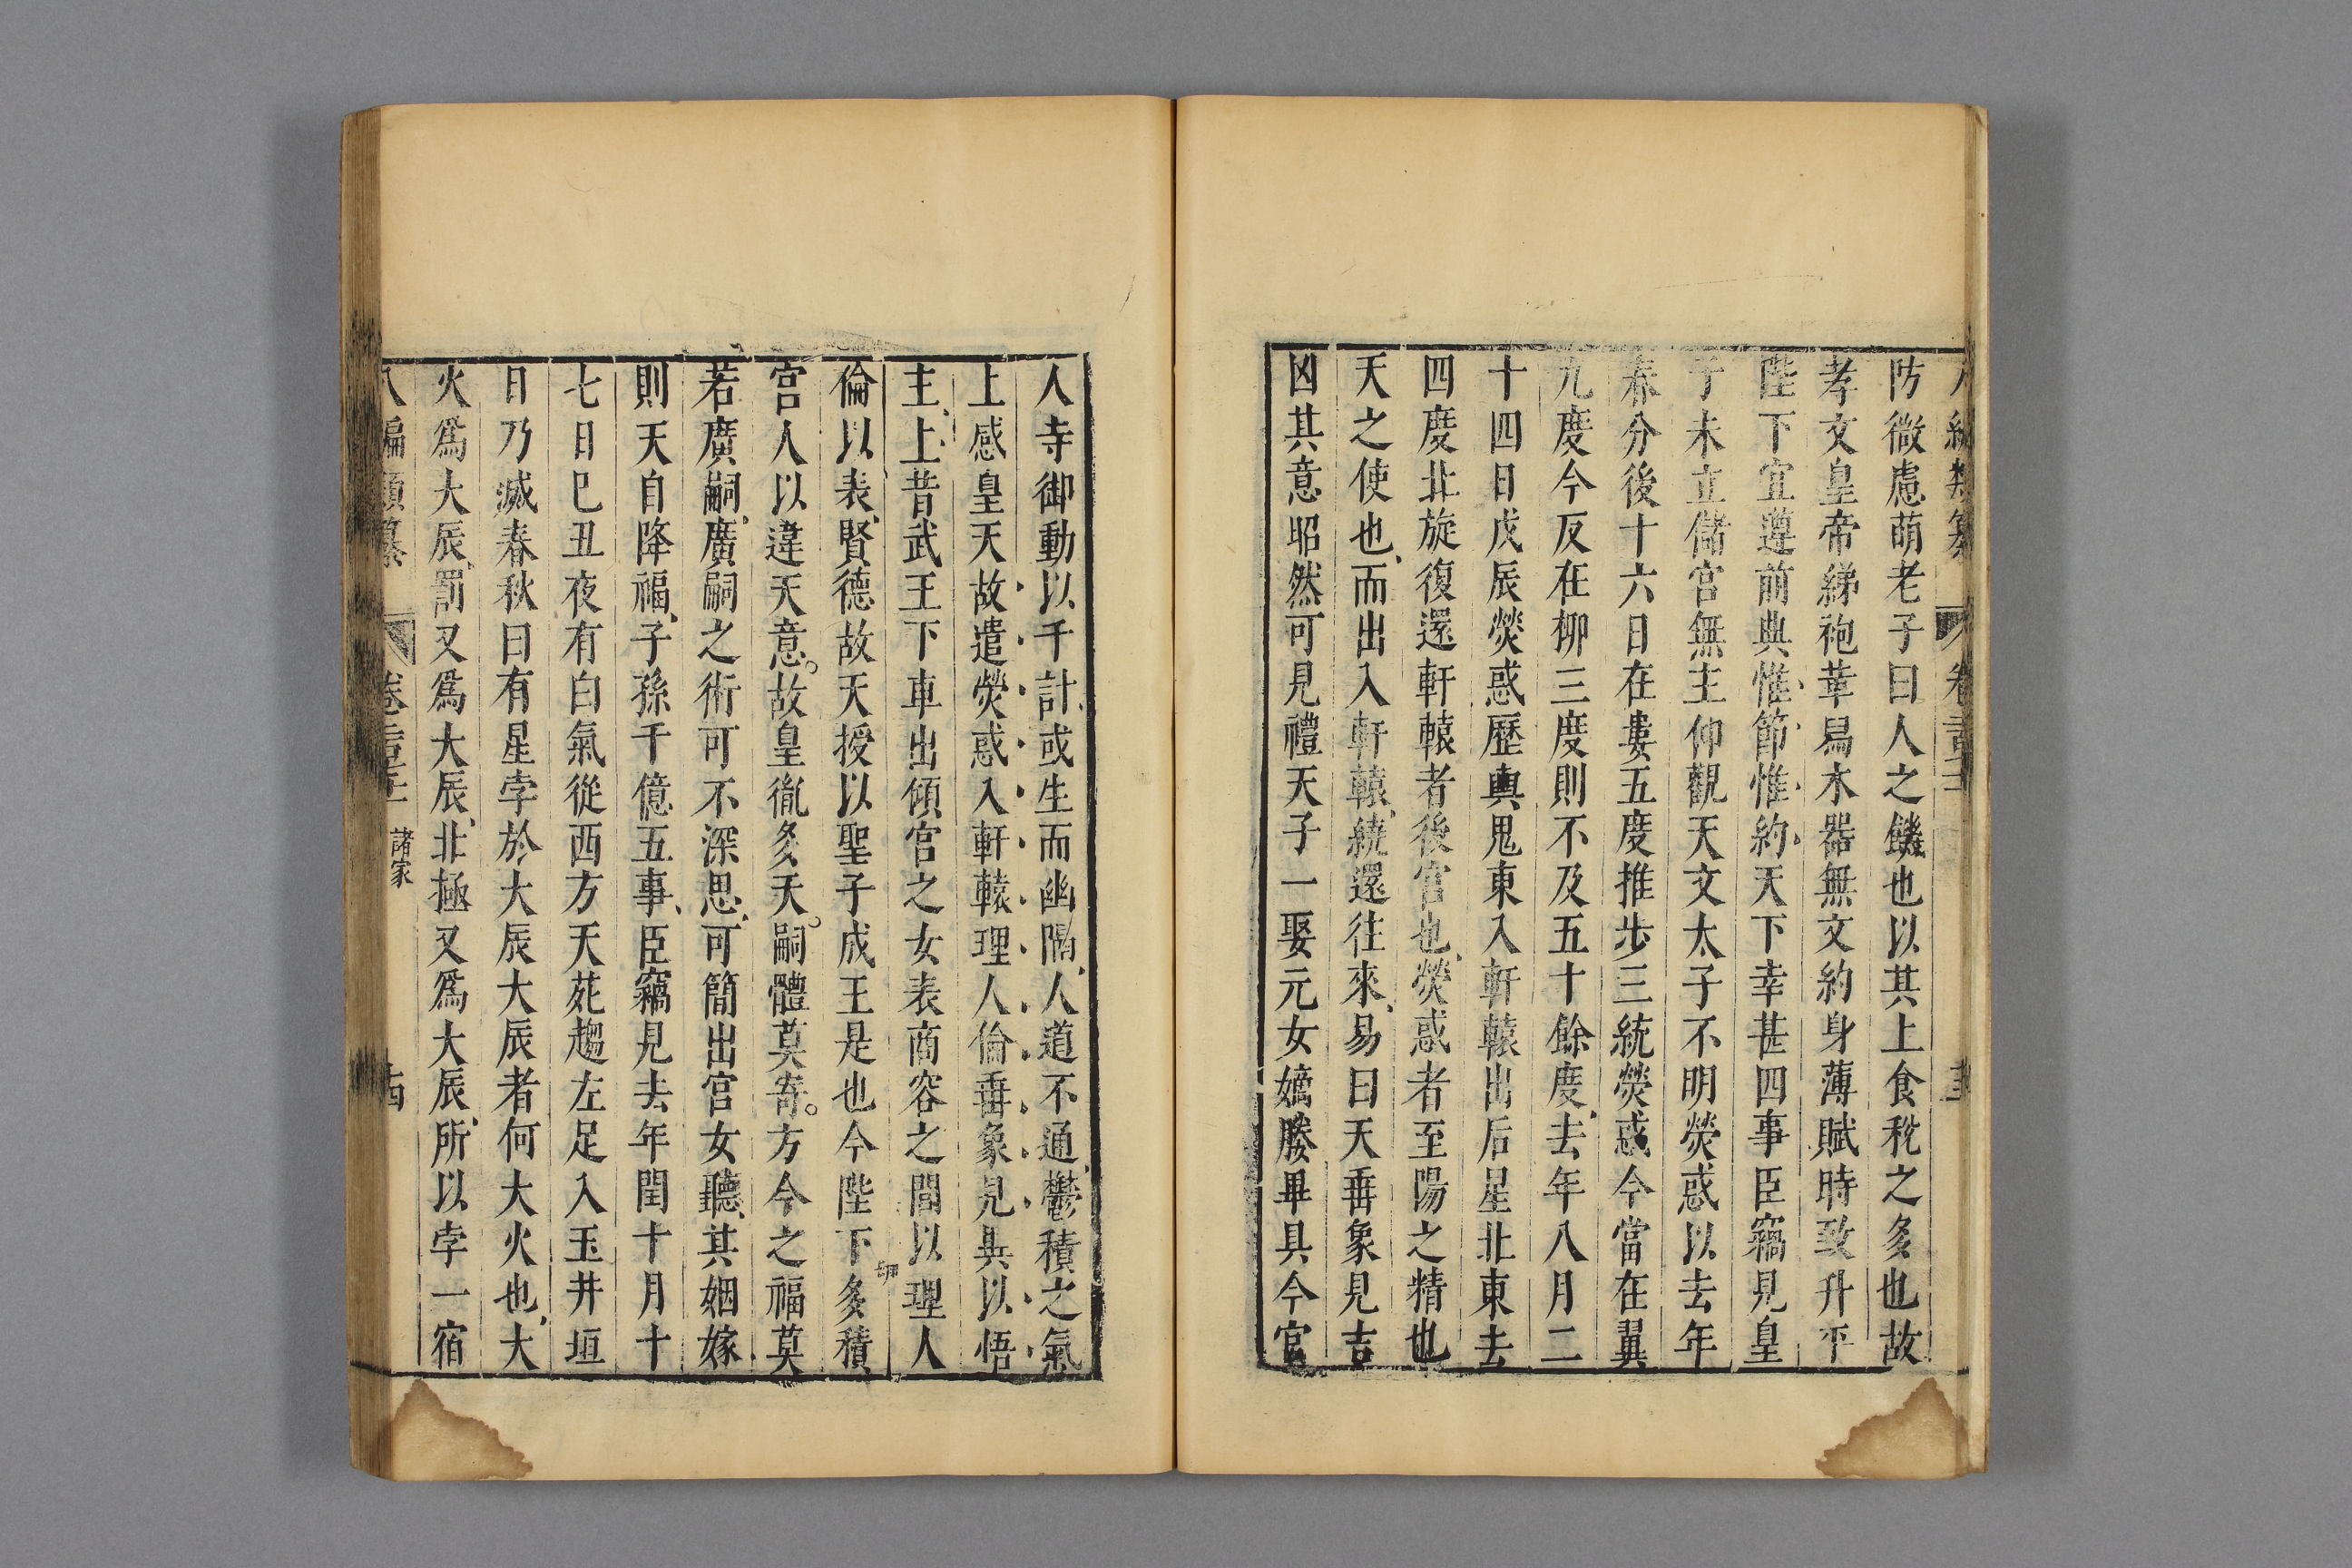 編類纂 卷
防微慮萌老子曰人之饑也以其上食稅之多也故
孝文皇帝綈袍革舄木器無文約身薄賦時致升平
陛下宜遵前典惟節惟約天下幸甚四事臣竊見皇
子未立儲宮無主仰觀天文太子不明熒惑以去年
春分後十六日在婁五度推步三統熒惑今當在翼
九度今反在柳三度則不及五十餘度去年八月二
十四日戊辰熒惑歷輿鬼東入軒轅出后星北東去
四度北旋復還軒轅者後宮也熒惑者至陽之精也
天之使也而出入軒轅繞還往來易曰天垂象見吉
凶其意昭然可見禮天子一娶元女嫡媵畢具今宮
人寺御動以千計或生而幽隔人道不通鬱積之氣
上感皇天故遣熒惑入軒轅理人倫垂象見異以悟
主上昔武王下車出傾宮之女表商容之閭以理人
倫以表賢德故天授以聖子成王是也今陛下多積
宮人以違天意故皇胤多夭嗣體莫寄方今之福莫
若廣嗣廣嗣之術可不深思可簡出宮女聽其姻嫁
則天自降福子孫千億五事臣竊見去年閏十月十
七日己丑夜有白氣從西方天苑趨左足入玉井垣
日乃滅春秋曰有星孛於大辰大辰者何大火也大
火爲大辰罰又爲大辰北極又爲大辰所以孛一宿
八編類纂 卷 諸家